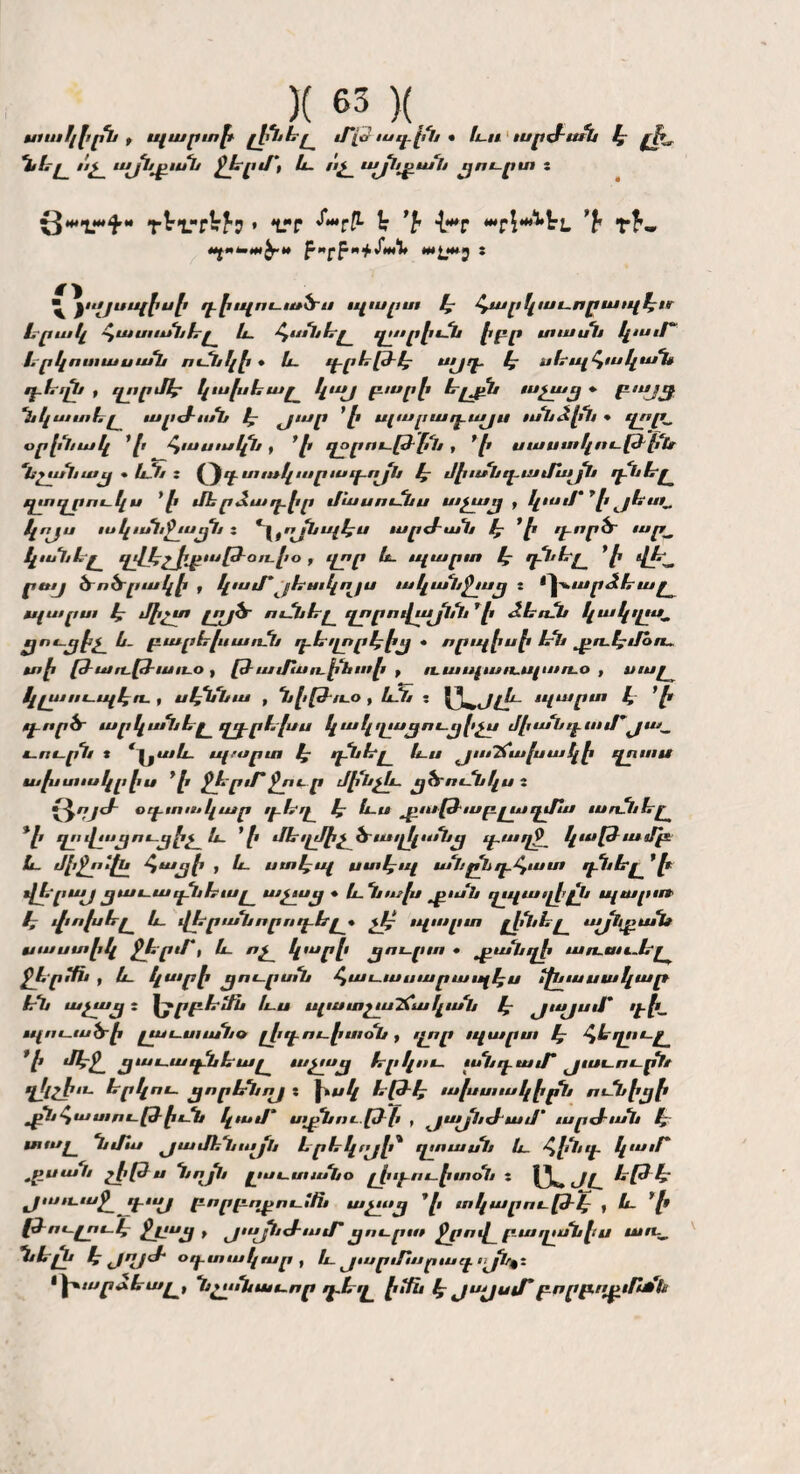 )( 63 )(
տակիրն , պարտի լինել մլթագին • ևս արժան է լի֊
նել ոչ այնքան ջերմ, և ոչ այնքան ցուրտ :
Յաղագս դեղորէից , զոր մարթ է ՚ի վար արկանել ՚ի դի֊
պուածս բորբոքման աչաց :
Այսպիսի դիպուածս պարտ է հարկաւորապէս
երակ հատանել և հանել զարիւն իբր տասն կամ
երկոտասան ունկի • և գրեթէ այդ է սեպհական
դեղն , զորմէ կախեալ կայ բարի ելքն աչաց • բայց
նկատել արժան է յար ՚ի պարագայս անձին • զոր
օրինակ ՚ի հասակն , ՚ի զօրութին , ՚ի սաստկութին
նշանաց • ևն : Օգտակարագոյն է միանգամայն դնել
զտզրուկս ՚ի մերձադիր մասունս աչաց , կամ ՚ի յետ֊
կոյս ականջացն : Նոյնպէս արժան է ՚ի գործ ար֊
կանել զվէշիքաթօռիօ , զոր և պարտ է դնել ՚ի վե֊
րայ ծոծրակի , կամ յետկոյս ականջաց : Դարձեալ
պարտ է միշտ լոյծ ունել զորովայնն ՚ի ձեռն կակղա֊
ցուցիչ և բարեխառն դեղորէից • որպիսի են քռէմօռ֊
տի թառթառօ , թամառինտի , ռապառպառօ , սալ
կլաուպէռ, սէննա , նիթռօ , ևն : Այլև պարտ է ՚ի
գործ արկանել զգրեխս կակղացուցիչս միանգամ յա֊
ւուրն : Նաև պարտ է դնել ևս յաճախակի զոտս
ախտակրիս ՚ի ջերմ ջուր մինչև ցծունկս :
Յոյժ օգտակար դեղ է ևս քաթաբլազմս առնել
՚ի զովացուցիչ և ՚ի մեղմիչ ծաղկանց գաղջ կաթամբ
և միջուկ հացի , և ստէպ ստէպ անընդհատ դնել ՚ի
վերայ ցաւագնեալ աչաց • և նախ քան զպաղիլն պարտ
է փոխել և վերանորոգել • չէ պարտ լինել այնքան
սաստիկ ջերմ, և ոչ կարի ցուրտ • քանզի առաւել
ջերմն , և կարի ցուրտն հաւասարապէս վնասակար
են աչաց : Երբեմն ևս պատշաճական է յայսմ դի֊
պուածի լաւտանօ լիգուիտօն , զոր պարտ է հեղուլ
՚ի մէջ ցաւագնեալ աչաց երկու անգամ յաւուրն
զկշիռ երկու ցորենոյ : Իսկ եթէ ախտակիրն ունիցի
քնհատութիւն կամ աքնութի , յայնժամ արժան է
տալ նմա յամենայն երեկոյի զտասն և հինգ կամ
քսան շիթս նոյն լաւտանօ լիգուիտօն : Այլ եթէ
յառաջ գայ բորբոքումն աչաց ՚ի տկարութէ , և ՚ի
թուլուէ ջլաց , յայնժամ ցուրտ ջրով բաղանիս առ֊
նելն է յոյժ օգտակար , և յարմարագոյն:
Դարձեալ, նշանաւոր դեղ իմն է յայսմ բորբոքման